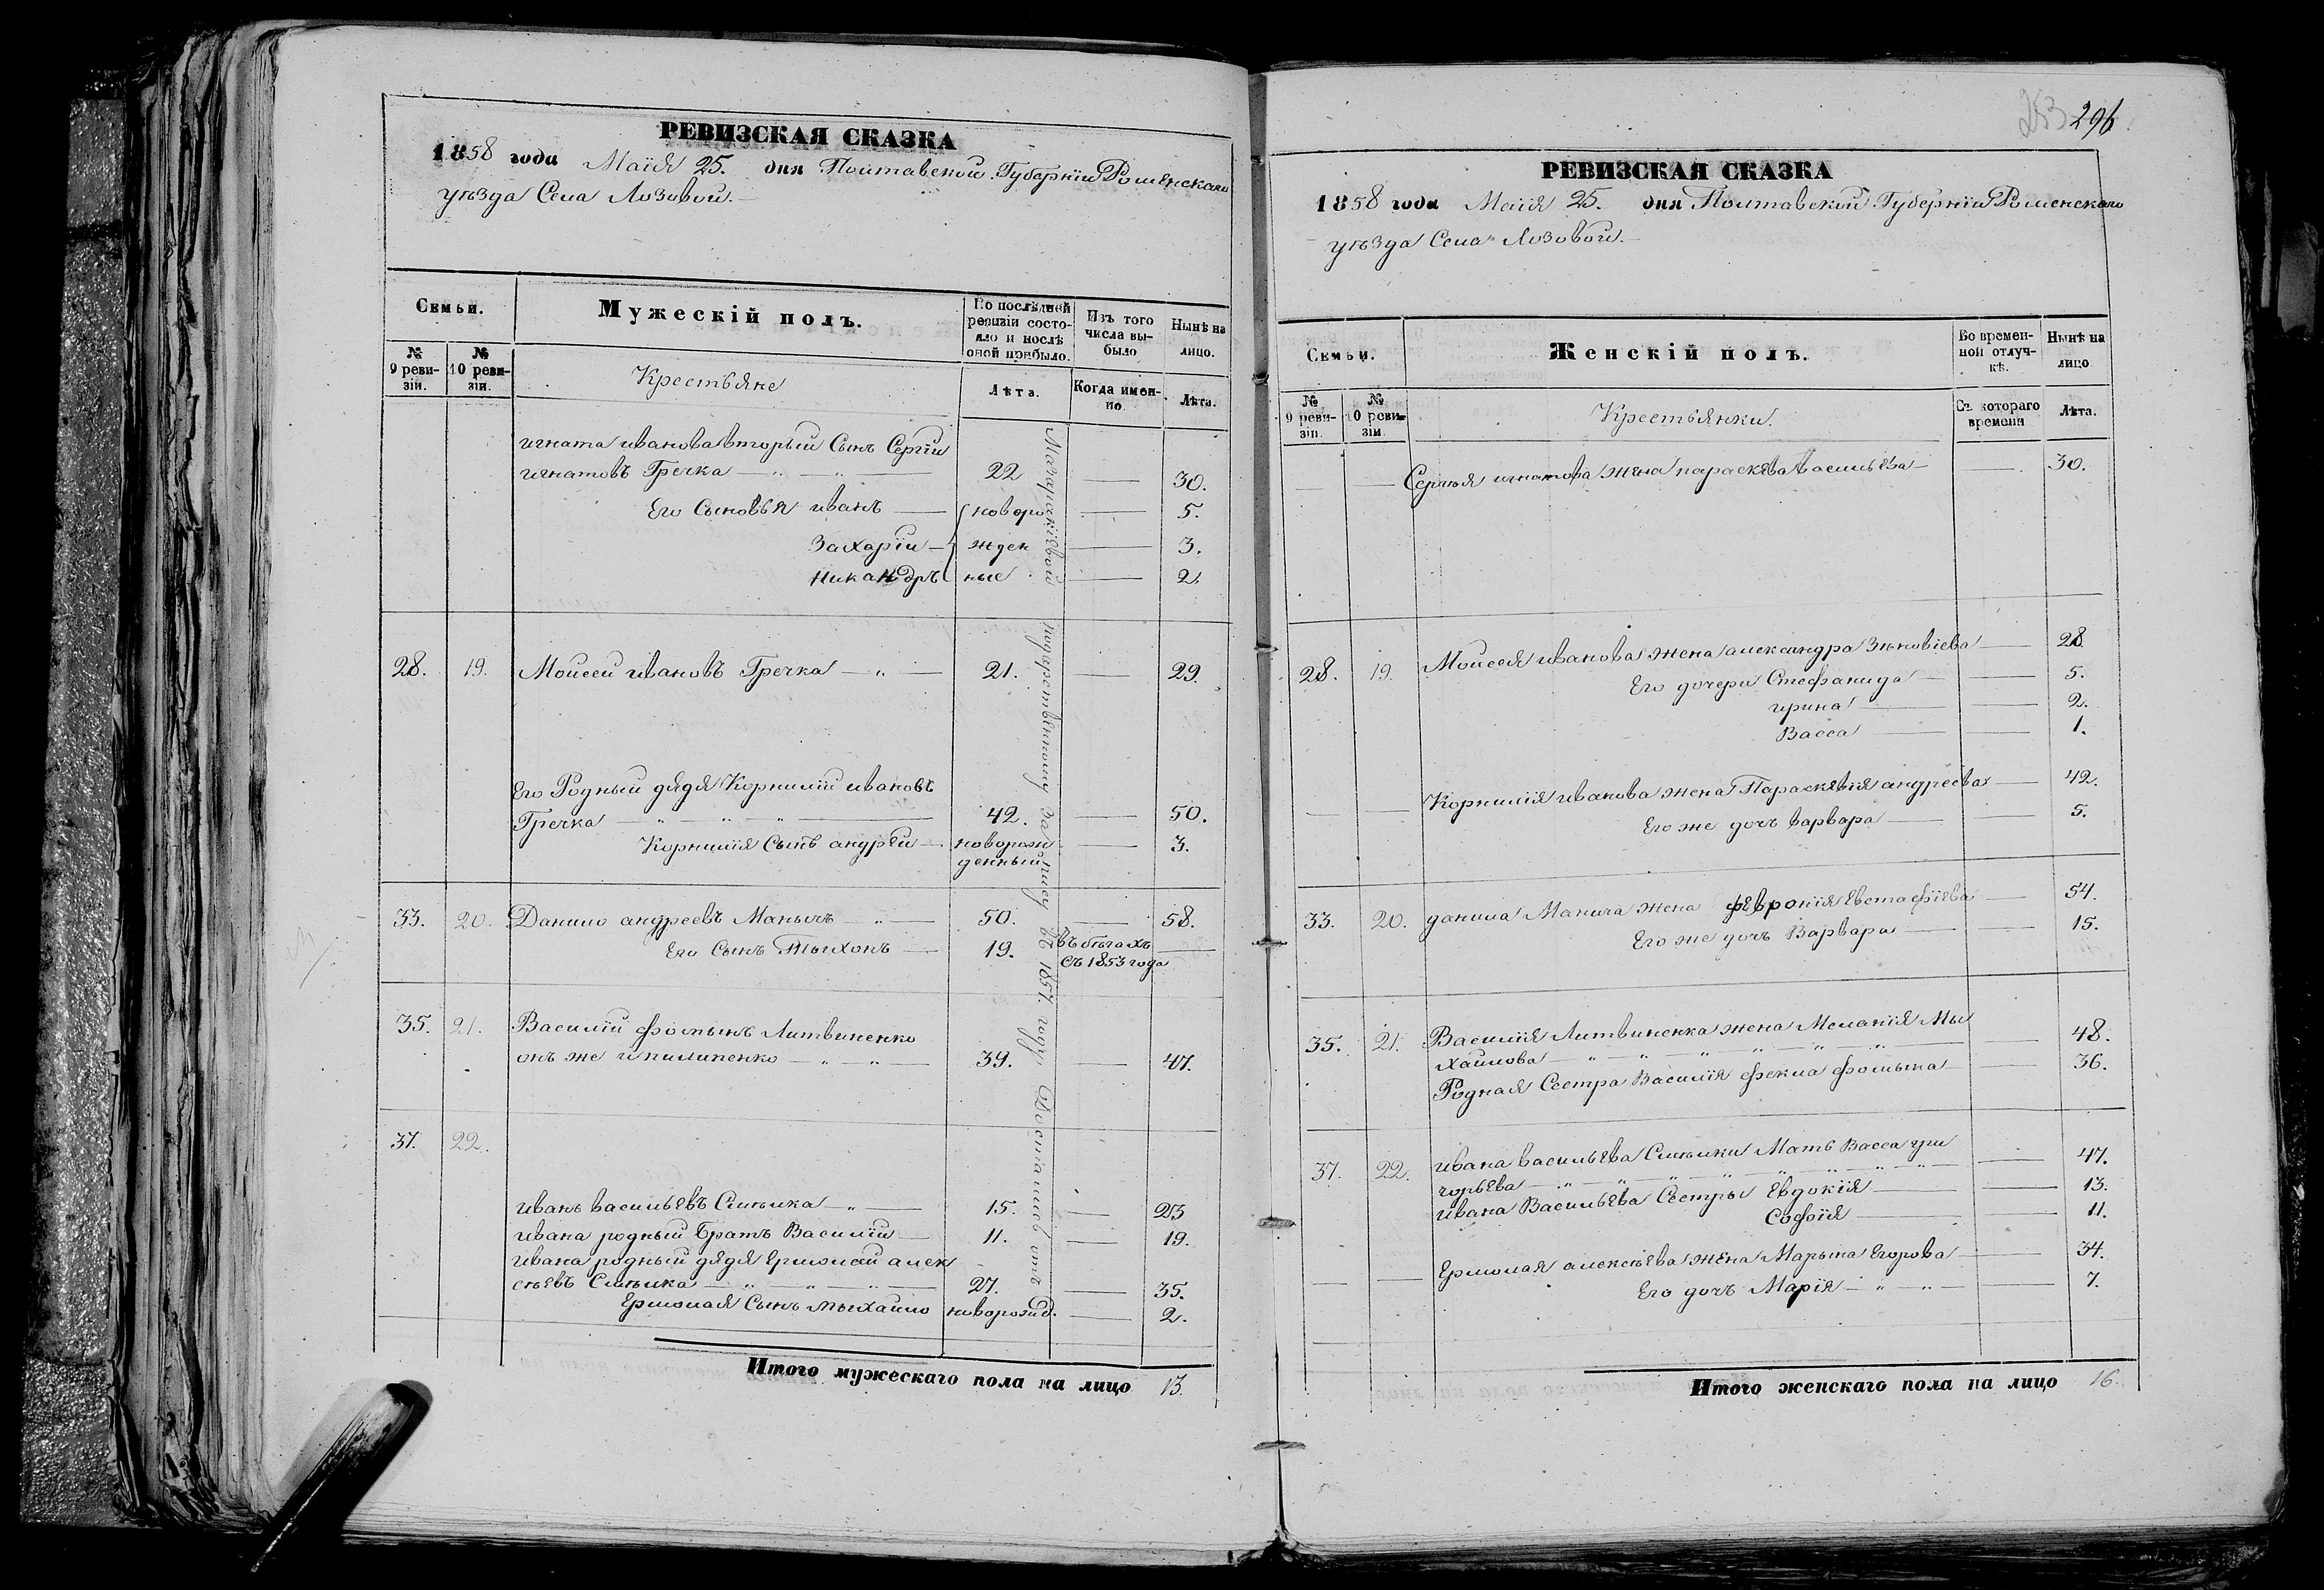 РЕВИЗСКАЯ СКАЗКА
1858 года Маія 25. дня Полтавской Губерніи Роменскаго
уѣзда Села Лозовой.
Семьи.
Мужескій полъ.
По послѣдней ревизіи состояло и послѣ оной прибыло.
Изъ того числа выбыло
Нынѣ на лицо.
№ 9 ревизіи.
№ 10 ревизіи.
Крестьяне
Лѣта.
Когда именно.
Лѣта.
игната иванова вторый Сынъ Сергій
игнатовъ Гречка 22 30.
Его Сыновья иванъ новоро 5.
Захарій жден 3.
Никандръ ные 2.
28. 19. Моисей ивановъ Гречка 21. 29.
Его Родный дядя Корнилій ивановъ
Гречка 42. 50.
Корнилія Сынъ андрей новорож 3.
денный
33. 20. Данило андреевъ Манычъ 50. 58.
Его Сынъ Тыхонъ 19. въ бѣгахъ
съ 1853 года
35. 21. Василій фомынъ Литвиненко
онъ же и пилипенко 39. 47.
37. 22.
иванъ васильевъ Слѣпика 15. 23
ивана родный братъ Василій 11. 19.
ивана родный дядя Ермолай алек
сѣевъ 27. 35.
Ермолая Сынъ мыхайло новорожд. 2.
въ 1857. году Достались отъ
Итого мужескаго пола на лицо 13.
253 296
РЕВИЗСКАЯ СКАЗКА
1858 года Маія 25. дня Полтавской Губерніи Роменскаго
уѣзда Села Лозовой.
Семьи.
Женскій полъ.
Во временной отлучкѣ.
Нынѣ на лицо
№ 9 ревизіи.
№ 10 ревизіи.
Крестьянки.
Съ котораго времени
Лѣта.
Сергѣя игнатова жена параскева васильева 30.
28. 19. Моисея иванова жена александра Зѣновіева 28.
Его дочери Стефанида 5.
ирина 2.
Васса 1.
Корнилія иванова жена Параскевія андреева 42.
Его же дочъ варвара 5.
33. 20. данила Манича жена февронія Евстафіева 54.
Его же дочъ Варвара 15.
35. 21. Василія Литвиненка жена Меланія Мы
хайлова 48.
Родная Сестра Василія фекла фомына 36.
37. 22. ивана васильева Мать Васса гри
горьева 47.
ивана Васильева Сестры Евдокія 13.
Софія 11.
Ермолая алексѣева жена Марына Егорова 34.
Его дочъ Марія 7.
Итого женскаго пола на лицо 16.